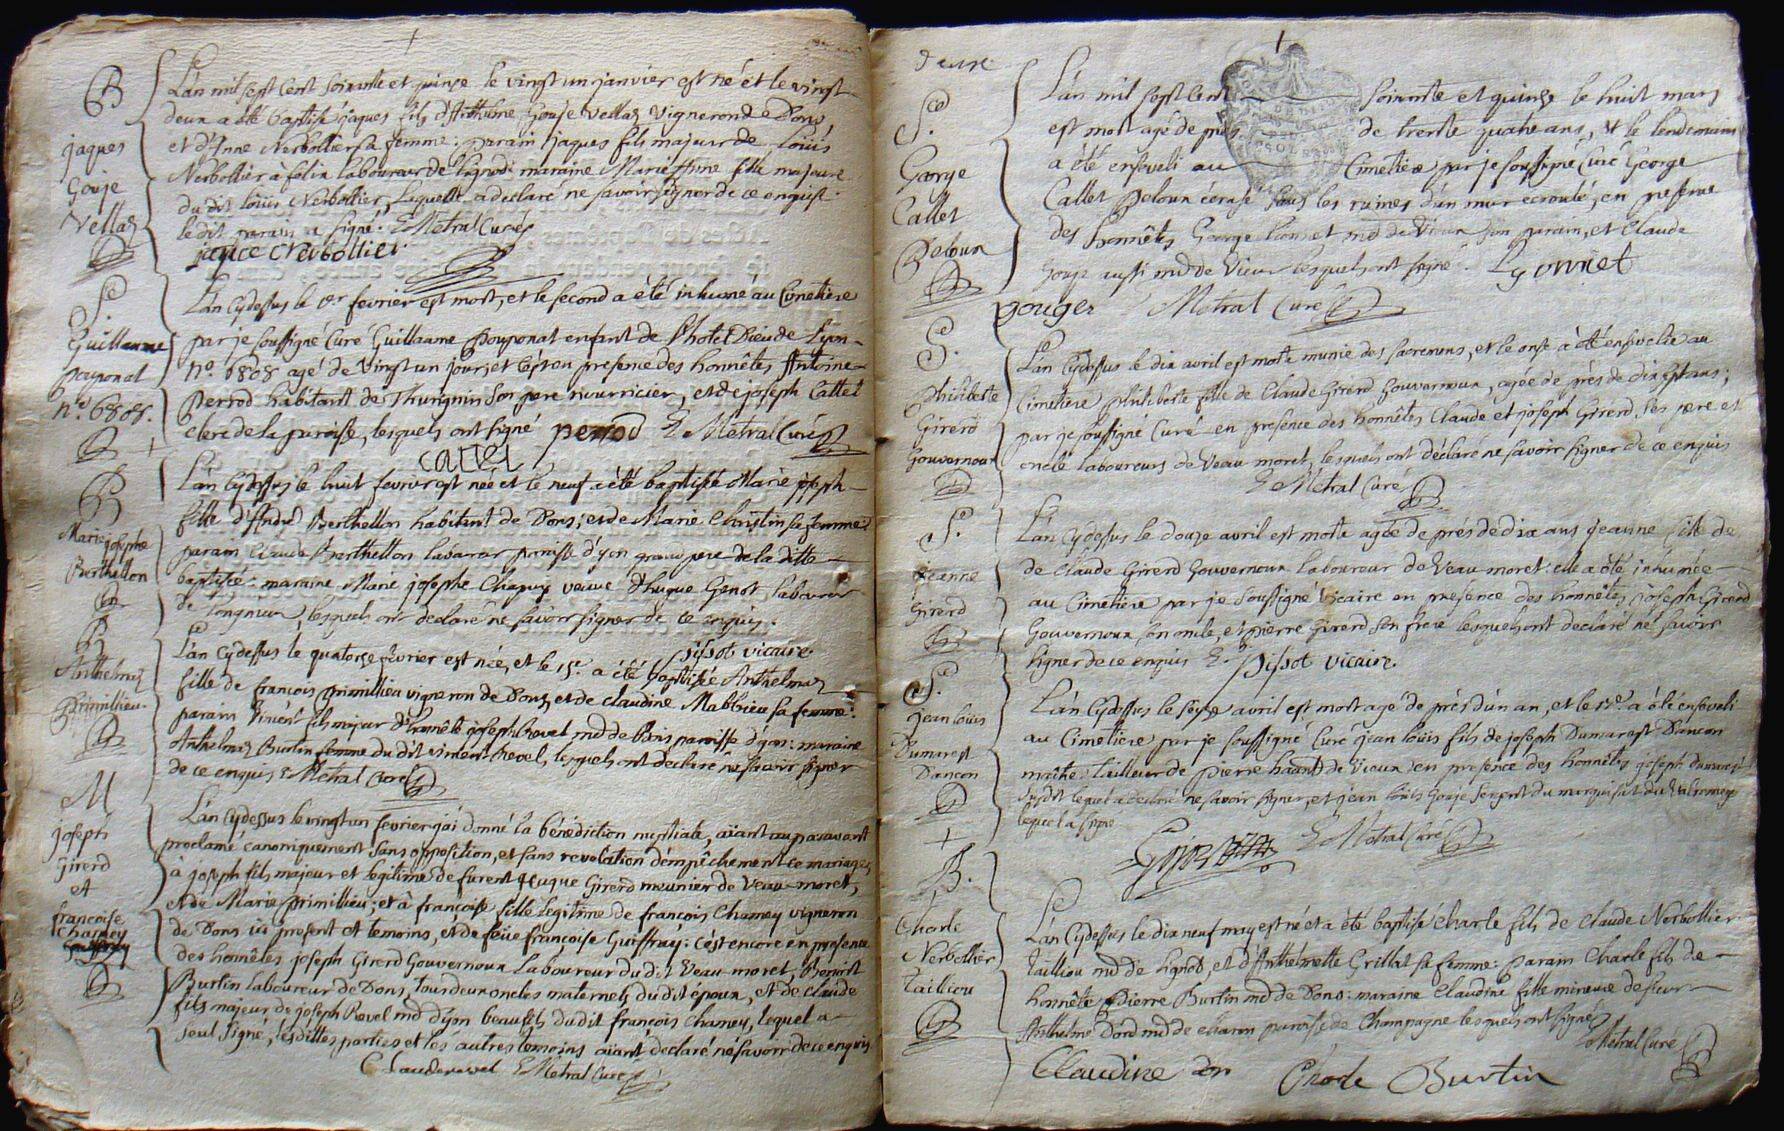 B
jaques
Gouje
Vellaz
L'an mil sept cent soixante et quinze le vingt un janvier est né et le vingt
deux a été baptisé jaques fils d'Anthelme Gouje Vellaz vigneron de Dons
et d'Anne Nerbollier sa femme: parain jaques fils majeur de Louis
Nerbollier à félix laboureur de lignod: maraine Marie Anne fille majeure
du dit Louis Nerbollier, laquelle a declaré ne savoir signer de ce enquise
le dit parain a signé. Metral Curé
jaque Nerbollier
S.e
Guillaume
pouponat
n.o 6808.
L'an cydessus le 1er fevrier est mort, et le second a été inhumé au Cimetiere
par je soussigné Curé Guillaume pouponat enfant de l'hotel Dieu de Lyon
n.o 6808 agé de vingt un jours, et c'est en presence des honnêtes Antoine
perrod habitant de Thurignin son pere nourricier, et de joseph Callet
clerc de la paroisse, lesquels ont signé perrod Metral Curé
callet
B
Marie josephe
Berthellon
L'an cydessus le huit fevrier est née et le neuf a été baptisée Marie joseph
fille d'André Berthellon habitant de Dons, et de Marie Christin sa femme
parain Claude Berthellon laboureur paroisse d'yon grand pere de la ditte
baptisée: maraine Marie josephe Chapuy veuve d'hugue Genot laboureur
de Songnieux, lesquels ont declaré ne savoir signer de ce enquis.
pissot vicaire
B
Anthelmaz
primillieu
L'an cydessus le quatorze fevrier est née, et le 15e a été baptisée Anthelmaz
fille de françois primillieu vigneron de Dons, et de claudine Mabbieu sa femme:
parain Vincent fils majeur d'honnête joseph Revel md de Dons paroisse d'yon: maraine
Anthelmaz Burtin femme du dit vincent Revel, lesquels ont declaré ne savoir signer
de ce enquis Metral Curé
M
joseph
girerd
et
françoise
Chamey
L'an cydessus le vingt un fevrier j'ai donné la bénédiction nuptiale, aiant auparavant
proclamé canoniquement sans opposition, et sans revelation d'empêchement ce mariage,
à joseph fils majeur et legitime de furent hugue Girerd meunier de Veau-moret,
et de Marie primillieu; et à françoise fille legitime de françois Chamey vigneron
de Dons ici present et temoins, et de feüe françoise Guiffray: c'est encore en presence
des honnêtes joseph Girerd Gouvernoux Laboureur du dit Veau-moret, Benoit
Burtin laboureur de Dons, tous deux oncles maternels du dit époux, et de claude
fils majeur de joseph Revel md d'yon beaufils du dit françois Chamey, lequel a
seul signé, les dittes parties et les autres temoins aiant declaré ne savoir de ce enquis
Claude revel Metral Curé
S.e
George
Callet
Peloux
L'an mil sept cent soixante et quinze le huit mars
est mort agé de près de trente quatre ans, et le lendemain
a été enseveli au Cimetiere par je soussigné Curé George
Callet Peloux écrasé sous les ruines d'un mur écroulé, en presence
des honnêtes George Lionnet md de Vieux son parain, et Claude
Gouje aussi md de Vieux lesquels ont signé. Lyonnet
gouges Metral Curé
S.
philiberte
Girerd
Gouvernoux
L'an cydessus le dix avril est morte munie des sacremens, et le onze a été ensevelie au
Cimetiere philiberte fille de Claude Girerd Gouvernoux, agée de près de dix sept ans;
par je soussigné Curé en presence des honnêtes Claude et joseph Girerd, ses pere et
oncle laboureurs de Veau moret, lesquels ont déclaré ne savoir signer de ce enquis
Metral Curé
S.
jeanne
Girerd
L'an cydessus le douze avril est morte agée de près de dix ans jeanne fille de
de Claude Girerd Gouvernoux laboureur de Veau moret: elle a été inhumée
au Cimetiere par je soussigné Vicaire en présence des honnêtes joseph Girerd
Gouvernoux son oncle, et pierre Girerd son frere lesquels ont declaré ne savoir
signer de ce enquis pissot vicaire.
S.
jean louis
Dumarest
Dancon
L'an cydessus le seize avril est mort agé de près d'un an, et le 17e a été enseveli
au Cimetiere par je soussigné Curé jean louis fils de joseph Dumarest Dancon
maître tailleur de pierre habitant de Vieux en presence des honnêtes joseph Dumarest
susdit lequel a declaré ne savoir signer, et jean louis Gouje sergent du marquisat du Valromey
lequel a signé
Metral Curé
B.
Charle
Nerbollier
Tailliou
L'an cydessus le dix neuf may est né et a été baptisé Charle fils de Claude Nerbollier
Tailliou md de lignod, et d'Anthelmette Grillat sa femme: parain Charle fils de
honnête pierre Burtin md de Dons: maraine Claudine fille mineure de sieur
Anthelme Dord md de charon paroisse de Champagne lesquels ont signé
Metral Curé
Claudine Dor Charle Burtin